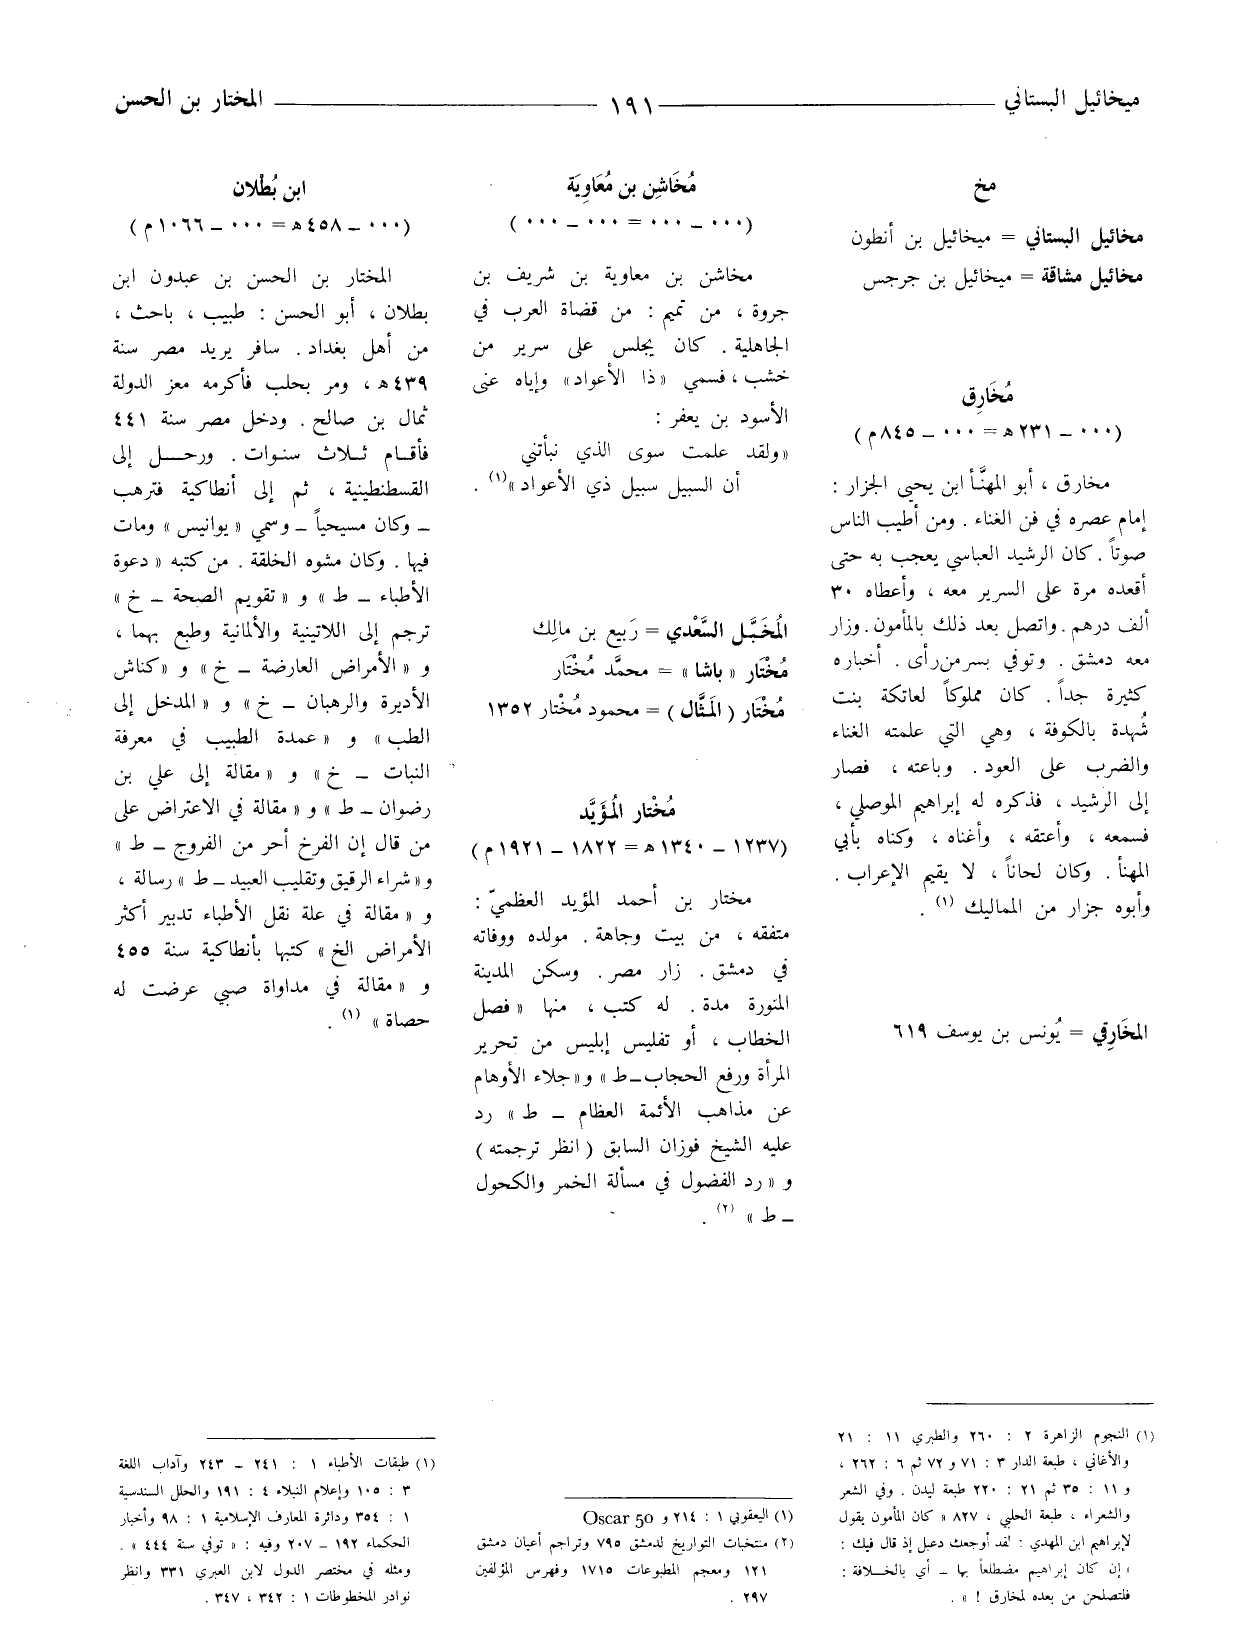 ميخائيل البستاني ١٩١ المختار بن الحسن
مخ
مخائيل البستاني = ميخائيل بن أنطون
مخائيل مشاقة = ميخائيل بن جرجس
مُخَارِق
(٠٠٠ ــ ٢٣١ هـ = ٠٠٠ ــ ٨٤٥ م)
مخارق ، أبو المهنَّأ ابن يحيى الجزار :
إمام عصره في فن الغناء . ومن أطيب الناس
صوتاً . كان الرشيد العباسي يعجب به حتى
أقعده مرة على السرير معه ، وأعطاه ٣٠
ألف درهم . واتصل بعد ذلك بالمأمون . وزار
معه دمشق . وتوفي بسر من رأى . أخباره
كثيرة جداً . كان مملوكاً لعاتكة بنت
شُهدة بالكوفة ، وهي التي علمته الغناء
والضرب على العود . وباعته ، فصار
إلى الرشيد ، فذكره له إبراهيم الموصلي ،
فسمعه ، وأعتقه ، وأغناه ، وكناه بأبي
المهنأ . وكان لحاناً ، لا يقيم الإعراب .
وأبوه جزار من المماليك (١) .
المخَارِقي = يُونس بن يوسف ٦١٩
(١) النجوم الزاهرة ٢ : ٢٦٠ والطبري ١١ : ٢١
والأغاني ، طبعة الدار ٣ : ٧١ و ٧٢ ثم ٦ : ٢٦٢ ،
و ١١ : ٣٥ ثم ٢١ : ٢٢٠ طبعة ليدن . وفي الشعر
والشعراء ، طبعة الحلبي ، ٨٢٧ « كان المأمون يقول
لإبراهيم ابن المهدي : لقد أوجعك دعبل إذ قال فيك :
« إن كان إبراهيم مضطلعاً بها ــ أي بالخلافة :
فلتصلحن من بعده لمخارق ! » .
مُخَاشِن بن مُعَاوِيَة
(٠٠٠ ــ ٠٠٠ = ٠٠٠ ــ ٠٠٠)
مخاشن بن معاوية بن شريف بن
جروة ، من تميم : من قضاة العرب في
الجاهلية . كان يجلس على سرير من
خشب ، فسمي « ذا الأعواد » وإياه عنى
الأسود بن يعفر :
« ولقد علمت سوى الذي نبأتني
أن السبيل سبيل ذي الأعواد » (١) .
المُخَبَّل السَّعْدي = رَبيع بن مالِك
مُخْتَار « باشا » = محمَّد مُخْتَار
مُخْتَار ( المَثَّال ) = محمود مُختار ١٣٥٢
مُخْتَار المُؤَيَّد
(١٢٣٧ ــ ١٣٤٠ هـ = ١٨٢٢ ــ ١٩٢١ م)
مختار بن أحمد المؤيد العظميّ :
متفقه ، من بيت وجاهة . مولده ووفاته
في دمشق . زار مصر . وسكن المدينة
المنورة مدة . له كتب ، منها « فصل
الخطاب ، أو تفليس إبليس من تحرير
المرأة ورفع الحجاب ــ ط » و « جلاء الأوهام
عن مذاهب الأئمة العظام ــ ط » رد
عليه الشيخ فوزان السابق ( انظر ترجمته )
و « رد الفضول في مسألة الخمر والكحول
ــ ط » (٢) .
(١) اليعقوبي ١ : ٢١٤ و Oscar 50
(٢) منتخبات التواريخ لدمشق ٧٩٥ وتراجم أعيان دمشق
١٢١ ومعجم المطبوعات ١٧١٥ وفهرس المؤلفين
٢٩٧ .
ابن بُطْلان
(٠٠٠ ــ ٤٥٨ هـ = ٠٠٠ ــ ١٠٦٦ م)
المختار بن الحسن بن عبدون ابن
بطلان ، أبو الحسن : طبيب ، باحث ،
من أهل بغداد . سافر يريد مصر سنة
٤٣٩ هـ ، ومر بحلب فأكرمه معز الدولة
ثمال بن صالح . ودخل مصر سنة ٤٤١
فأقام ثلاث سنوات . ورحل إلى
القسطنطينية ، ثم إلى أنطاكية فترهب
ــ وكان مسيحياً ــ وسمي « يوانيس » ومات
فيها . وكان مشوه الخلقة . من كتبه « دعوة
الأطباء ــ ط » و « تقويم الصحة ــ خ »
ترجم إلى اللاتينية والألمانية وطبع بهما ،
و « الأمراض العارضة ــ خ » و « كناش
الأديرة والرهبان ــ خ » و « المدخل إلى
الطب » و « عمدة الطبيب في معرفة
النبات ــ خ » و « مقالة إلى علي بن
رضوان ــ ط » و « مقالة في الاعتراض على
من قال إن الفرخ أحر من الفروج ــ ط »
و « شراء الرقيق وتقليب العبيد ــ ط » رسالة ،
و « مقالة في علة نقل الأطباء تدبير أكثر
الأمراض الخ » كتبها بأنطاكية سنة ٤٥٥
و « مقالة في مداواة صبي عرضت له
حصاة » (١) .
(١) طبقات الأطباء ١ : ٢٤١ ــ ٢٤٣ وآداب اللغة
٣ : ١٠٥ وإعلام النبلاء ٤ : ١٩١ والحلل السندسية
١ : ٣٥٤ ودائرة المعارف الإسلامية ١ : ٩٨ وأخبار
الحكماء ١٩٢ ــ ٢٠٧ وفيه : « توفي سنة ٤٤٤ » .
ومثله في مختصر الدول لابن العبري ٣٣١ وانظر
نوادر المخطوطات ١ : ٣٤٢ ، ٣٤٧ .